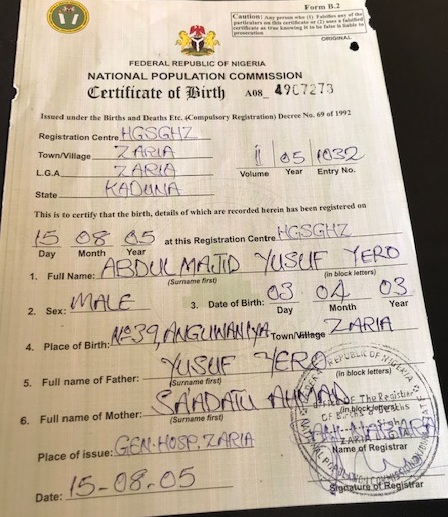 Form B.2
Caution: Any person who (1) Falsifies any of the
particulars on this certificate or (2) uses a falsified
certificate as true knowing it to be false is liable to
prosecution
ORIGINAL
FEDERAL REPUBLIC OF NIGERIA
NATIONAL POPULATION COMMISSION
Certificate of Birth A08_ 4967273
Issued under the Births and Deaths Etc. (Compulsory Registration) Decree No. 69 of 1992
Registration Centre HGSGHZ
Town/Village ZARIA
L.G.A ZARIA
State KADUNA
1 05 1032
Volume Year Entry No.
This is to certify that the birth, details of which are recorded herein has been registered on
15 08 05 at this Registration Centre HGSGHZ
Day Month Year
1. Full Name: ABDULMAJID YUSUF YERO
(Surname first) (in block letters)
2. Sex: MALE 3. Date of Birth: 03 04 03
Day Month Year
4. Place of Birth: No 39, ANGUWANIYA Town/Village ZARIA
5. Full name of Father: YUSUF YERO
(Surname first) (in block letters)
6. Full name of Mother: SA'ADATU AHMAD
(Surname first) (in block letters)
Place of issue: GEN. HOSP. ZARIA
Name of Registrar
Date: 15-08-05
Signature of Registrar